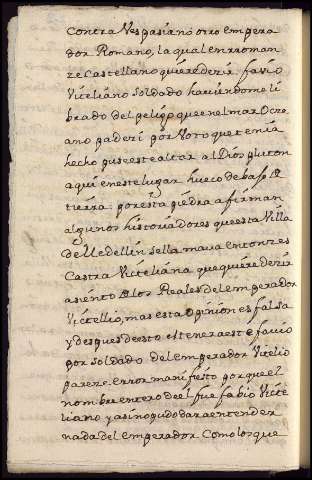 contra Vespasiano otro empera
dor Romano, la qual en Roman
ze Castellano quiere dezir favio
Viteliano Soldado haviendome li
brado del peligo que en el mar Ocze
ano padezi por Voto que tenia
hecho puse este altar al Dios pluton
aqui en este lugar hueco debajo de
tierra: por esta piedra afirman
algunos historiadores que esta Villa
de Medellin se llamava entonzes
Castra Viteliana que quiere dezir
asiento de los Reales del emperador
Vitellio, mas esta opinion es falsa
y despues de esto el tener a este favio
por soldado del emperador Vitelio
pareze error manifiesto porque el
nombre entero de el fue fabio Vite
liano y asi no pudo dar a entender
nada del emperador Como los que